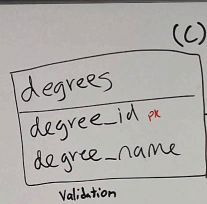 (C)
degrees
degree_id PK
degree_name
Validation